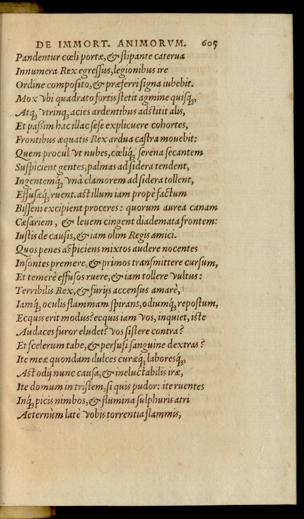 DE IMMORT. ANIMORVM. 605
Pandentur cœli portæ, & stipante caterua
Innumera Rex egressus, legionibus ire
Ordine composito, & præferri signa iubebit.
Mox vbi quadrato fortis stetit agmine quisq;,
Atq; vtrinq; acies ardentibus adstitit alis,
Et passim hac illac sese explicuere cohortes,
Frontibus æquatis Rex ardua castra mouebit:
Quem procul vt nubes, cœliq; serena secantem
Suspicient gentes, palmas ad sidera tendent,
Ingentemq; vnà clamorem ad sidera tollent,
Effusæq; ruent. ast illum iam propè factum
Bisseni excipient proceres: quorum aurea canam
Cæsariem, & leuem cingent diademata frontem:
Iustis de causis, & iam olim Regis amici.
Quos penes aspiciens mixtos audere nocentes
Insontes premere, & primos transmittere cursum,
Et temerè effusos ruere, & iam tollere vultus:
Terribilis Rex, & furijs accensus amarè,
Iamq; oculis flammam spirans, odiumq; repostum,
Ecquis erit modus? ecquis iam vos, inquiet, iste
Audaces furor eludet? vos sistere contra?
Et scelerum tabe, & persusi sanguine dextras?
Ite meæ quondam dulces curæq; laboresq;,
Ast odij nunc causa, & ineluctabilis iræ,
Ite domum in tristem, si quis pudor: ite ruentes
Inq; picis nimbos, & flumina sulphuris atri
Aeternùm latè vobis torrentia flammis,